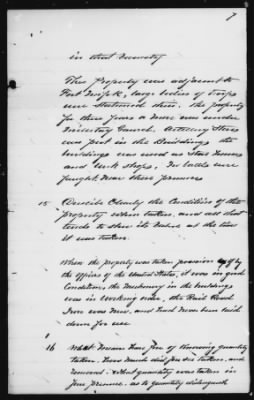 7
in that
This Property was adjacent to
Fort large bodies of troops
were Stationed there, the property
for three years or more was under
Military Stores
was put in the Buildings the
buildings was used as Store houses
and work shops, no battles were
fought near these premises
15 Describe Clearly the Condition of the
property when taken, and all that
tends to show its value at the time
it was taken.
When the property was taken possession of by
the officers of the United States, it was in good
Condition, the Machinery in the buildings
was in working order, the Rail Road
Iron was New, and had never been laid
down for use
16 What means have you of knowing quantity
taken. How much did you see taken, and
removed. What quantity was taken in
your presence. as to quantity distinguish